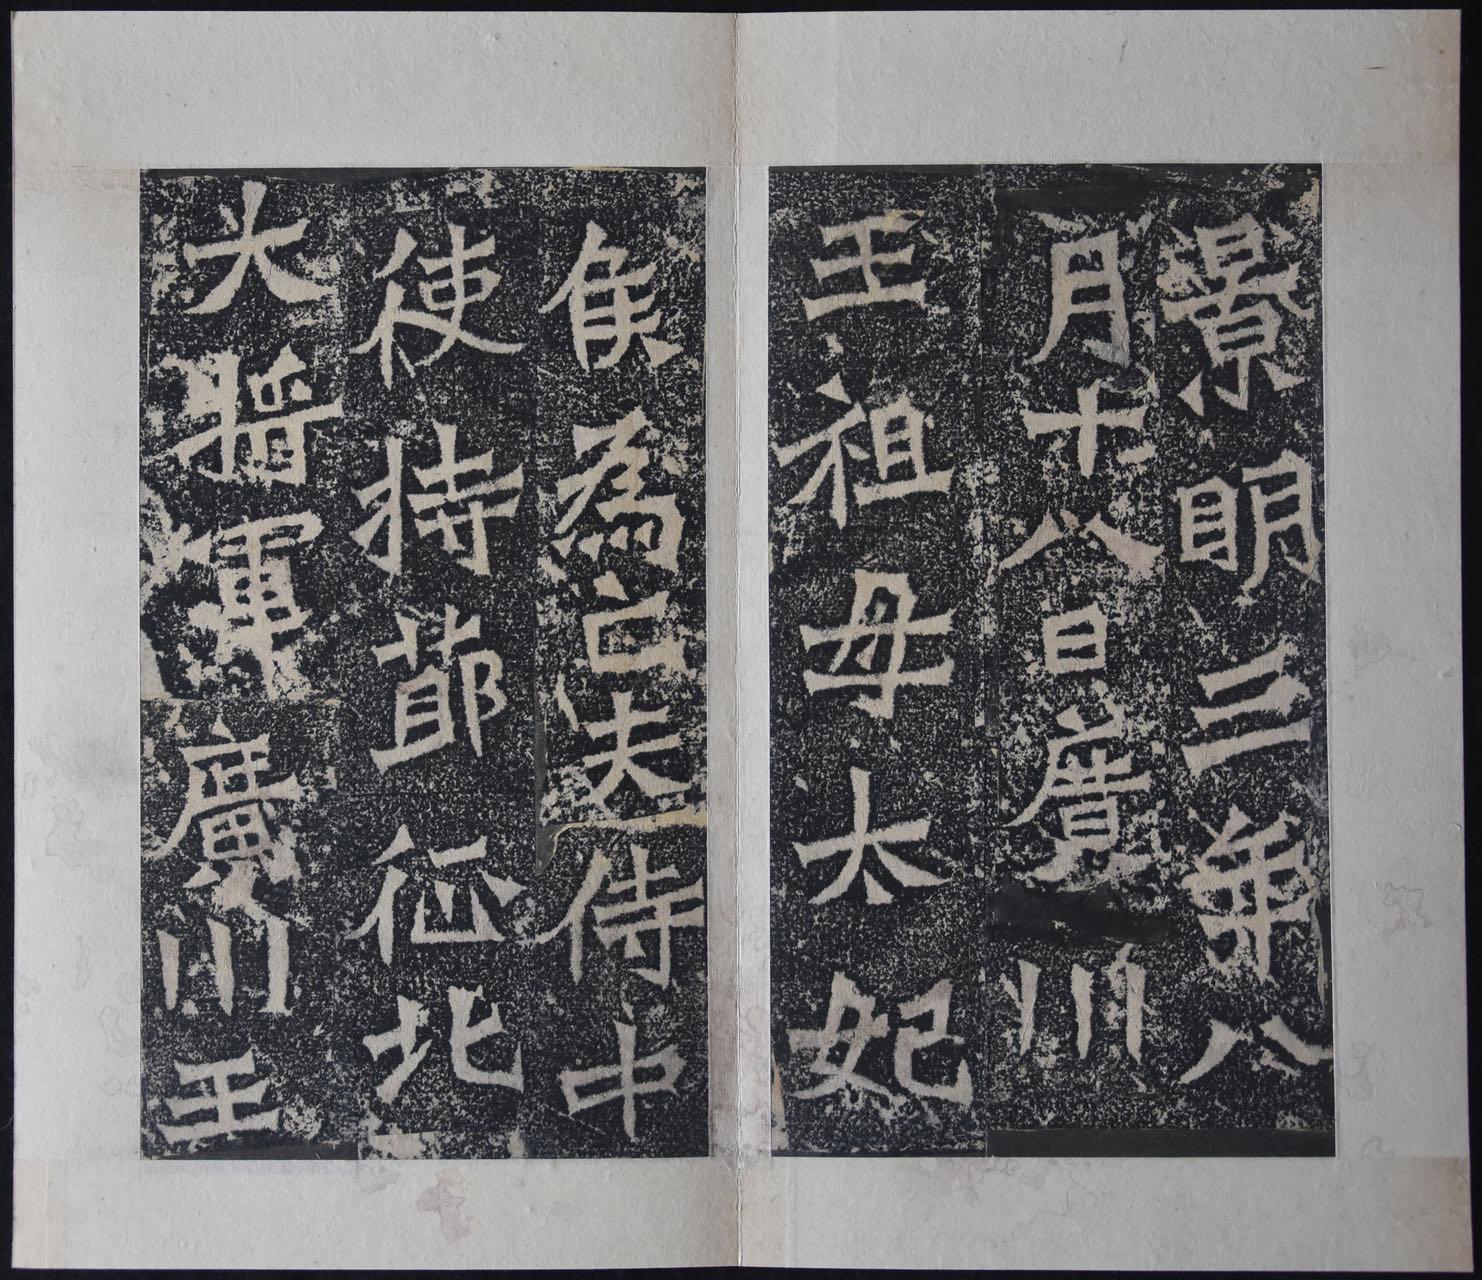 景明三年八
月十八日廣川
王祖母太妃
侯為亡夫侍中
使持節征北
大將軍廣川王